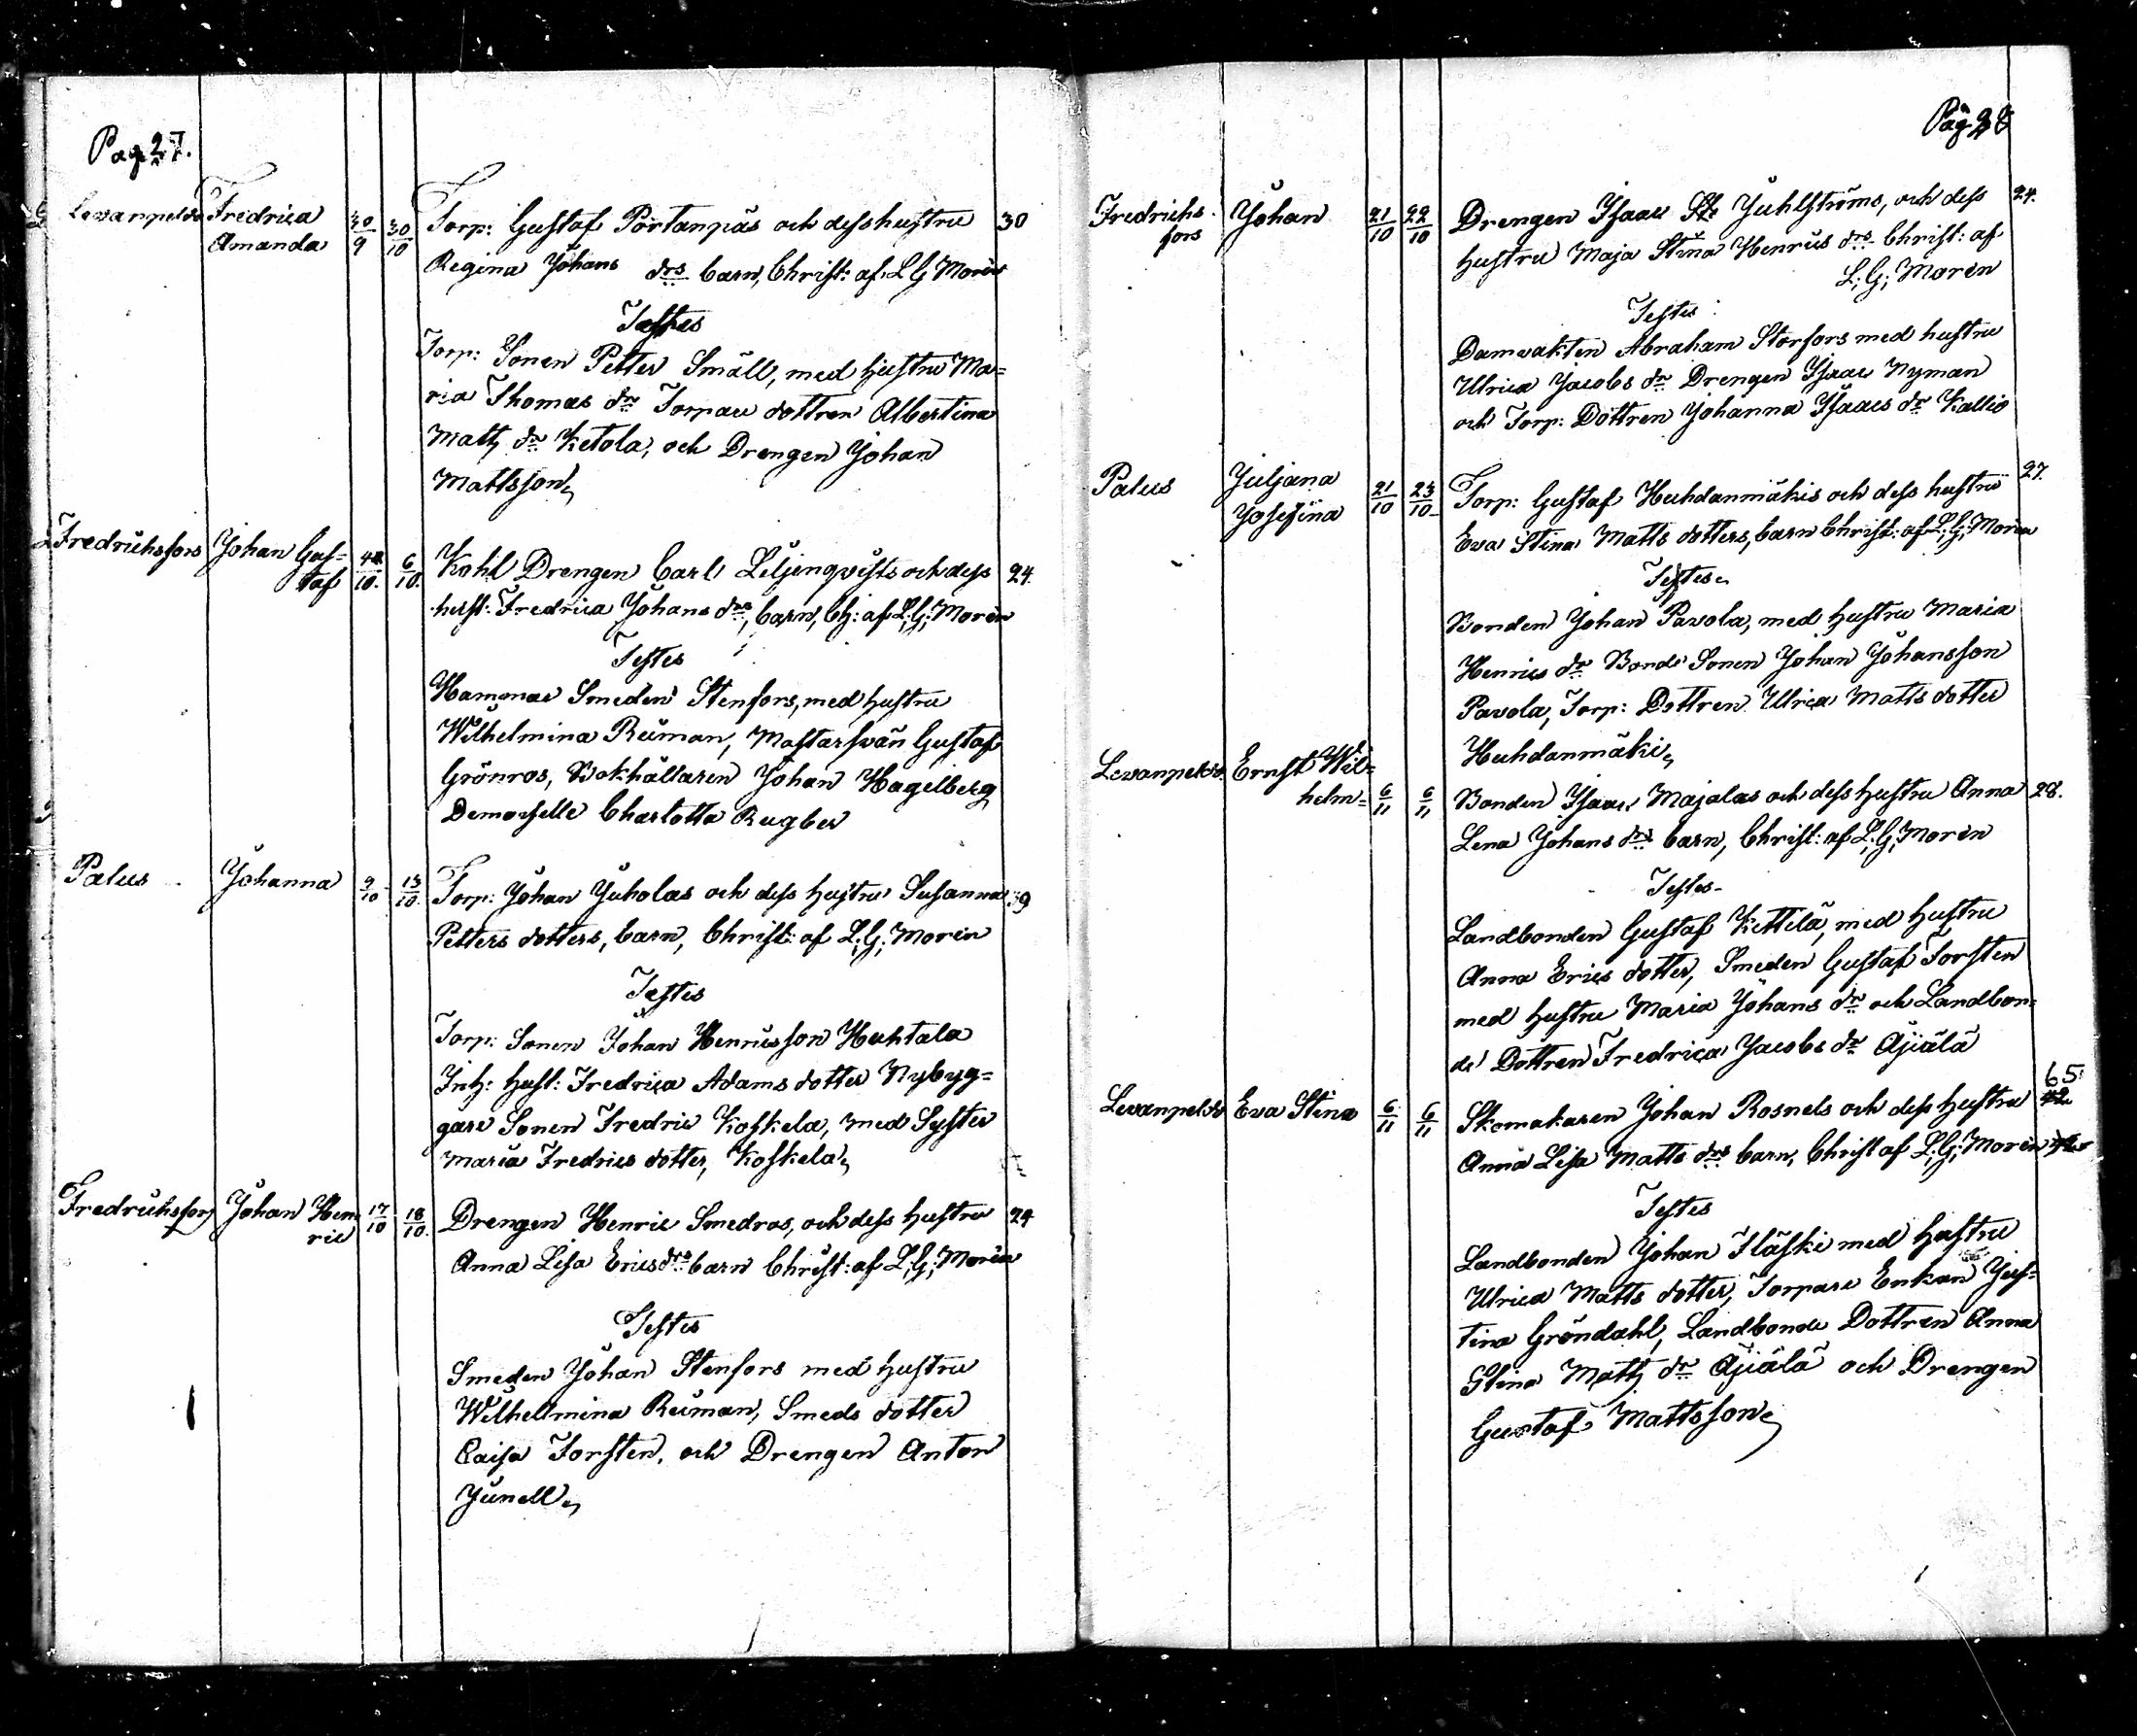 Pag 27.
Levanpelto Fredrica 30/9 30/10 Torp: Gustaf Portanpäs och dess hustru 30
Amanda Regina Johans drs barn, Christ: af L G Morén
Testes
Torp: Sonen Petter Smäll, med hustru Ma=
ria Thomas dr Torpare dottren Albertina
Matts dr Ketola, och Drengen Johan
Mattsson
Fredrichsfors Johan Gus= 4/10. 6/10. Kohl Drengen Carl Liljenqvists och dess 24.
taf hust: Fredrica Johans drs, barn, Ch: af L; G; Morén
Testes
Hammar Smeden Stenfors, med hustru
Wilhelmina Reuman, Mastarsvän Gustaf
Grönros, Bokhållaren Johan Hagelberg
Demoiselle Charlotta Rugber
Palus Johanna 9/10 13/10. Torp: Johan Juholas och dess hustru Susanna 39
Petters dotters, barn, Christ: af L; G; Morén
Testes
Torp: Sonen Johan Henricsson Huhtala
Inh: hust: Fredrica Adams dotter Nybyg=
gare Sonen Fredric Koskela, med Syster
Maria Fredrics dotter, Koskela
Fredrichsfors Johan Hen 17/10 18/10. Drengen Henric Smedros, och dess hustru 24
ric Anna Lisa Erics drs barn Christ: af L; G; Morén
Testes
Smeden Johan Stenfors med hustru
Wilhellmina Reuman, Smeds dotter
Caisa Forsten, och Drengen Anton
Junell
Pag 28
Fredrichs Johan 21/10 22/10 Drengen Isaac Juhlströms, och dess 24.
fors hustru Maja Stina Henrics drs Christ: af
L; G; Morén
Testes
Damvakten Abraham Storfors med hustru
Ulrica Jacobs dr Drengen Isaac Nyman
och Torp: Dottren Johanna Isaacs dr Kallio
Palus Juljana 21/10 23/10 Torp: Gustaf Huhdanmäkis och dess hustru 27.
Josefina Eva Stina Matts dotters, barn Christ: af L; G; Morén
Testes
Bonden Johan Pavola, med hustru Maria
Henrics dr Bonde Sonen Johan Johansson
Pavola, Torp: Dottren Ulrica Matts dotter
Huhdanmäki
Levanpelto Ernst Wil=
helm= 6/11 6/11 Bonden Isaac Majalas och dess hustru Anna 28.
Lena Johans drs barn, Christ: af L; G; Morén
Testes
Landbonden Gustaf Kettilä, med hustru
Anna Erics dotter, Smeden Gustaf Forsten
med hustru Maria Johans dr och Landbon=
de Dottren Fredrica Jacobs dr Äjiälä
65
Levanpelto Eva Stina 6/11 6/11 Skomakaren Johan Rosnels och dess hustru
Anna Lisa Matts drs barn, Christ af L; G; Morén
Testes
Landbonden Johan Fläski med hustru
Ulrica Matts dotter, Torpare Enkan Jus=
tina Gröndahl, Landbonde Dottren Anna
Stina Matts dr Äjiälä och Drengen
Gustaf Mattsson